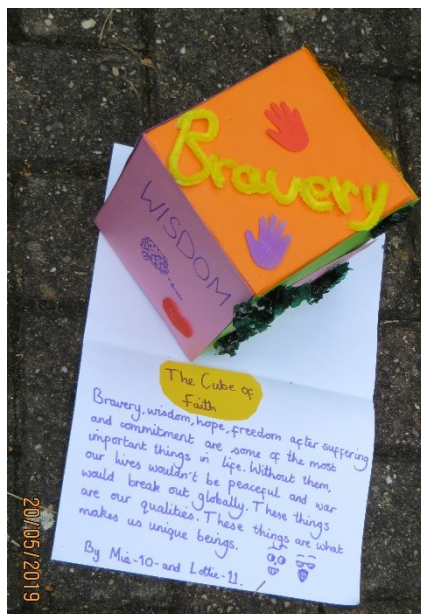 Bravery
WISDOM
The Cube of
Faith
Bravery, wisdom, hope, freedom after suffering
and commitment are some of the most
important things in life. Without them,
our lives wouldn't be peaceful and war
would break out globally. These things
are our qualities. These things are what
makes us unique beings.
By Mia-10-and Lottie-11.
20/05/2019